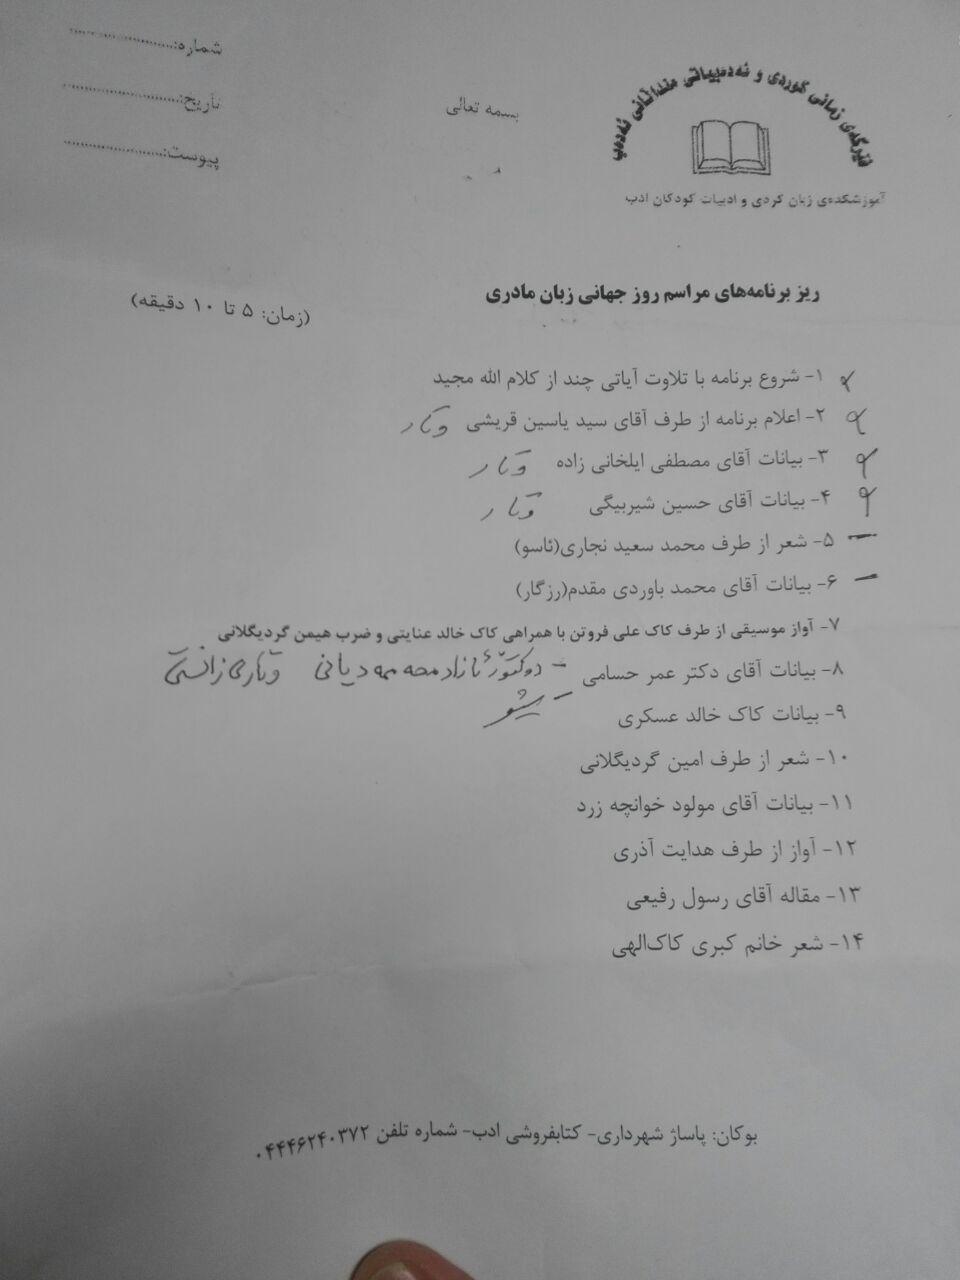 شماره:........................
تاریخ:........................
پیوست:........................
بسمه تعالی
فێرگەی زمانی کوردی و ئەدەبیاتی منداڵانی ئەدەب
آموزشکده‌ی زبان کردی و ادبیات کودکان ادب
ریز برنامه‌های مراسم روز جهانی زبان مادری
(زمان: ۵ تا ۱۰ دقیقه)
۱- شروع برنامه با تلاوت آیاتی چند از کلام الله مجید
۲- اعلام برنامه از طرف آقای سید یاسین قریشی وتار
۳- بیانات آقای مصطفی ایلخانی زاده وتار
۴- بیانات آقای حسین شیربیگی وتار
۵- شعر از طرف محمد سعید نجاری(ئاسو)
۶- بیانات آقای محمد باوردی مقدم(رزگار)
۷- آواز موسیقی از طرف کاک علی فروتن با همراهی کاک خالد عنایتی و ضرب هیمن گردیگلانی
۸- بیانات آقای دکتر عمر حسامی - دوکتۆر ئازاد محەمەدیانی وتاری زانستی
۹- بیانات کاک خالد عسکری -
۱۰- شعر از طرف امین گردیگلانی
۱۱- بیانات آقای مولود خوانچه زرد
۱۲- آواز از طرف هدایت آذری
۱۳- مقاله آقای رسول رفیعی
۱۴- شعر خانم کبری کاک‌الهی
بوکان: پاساژ شهرداری- کتابفروشی ادب- شماره تلفن ۰۴۴۴۶۲۴۰۳۷۲